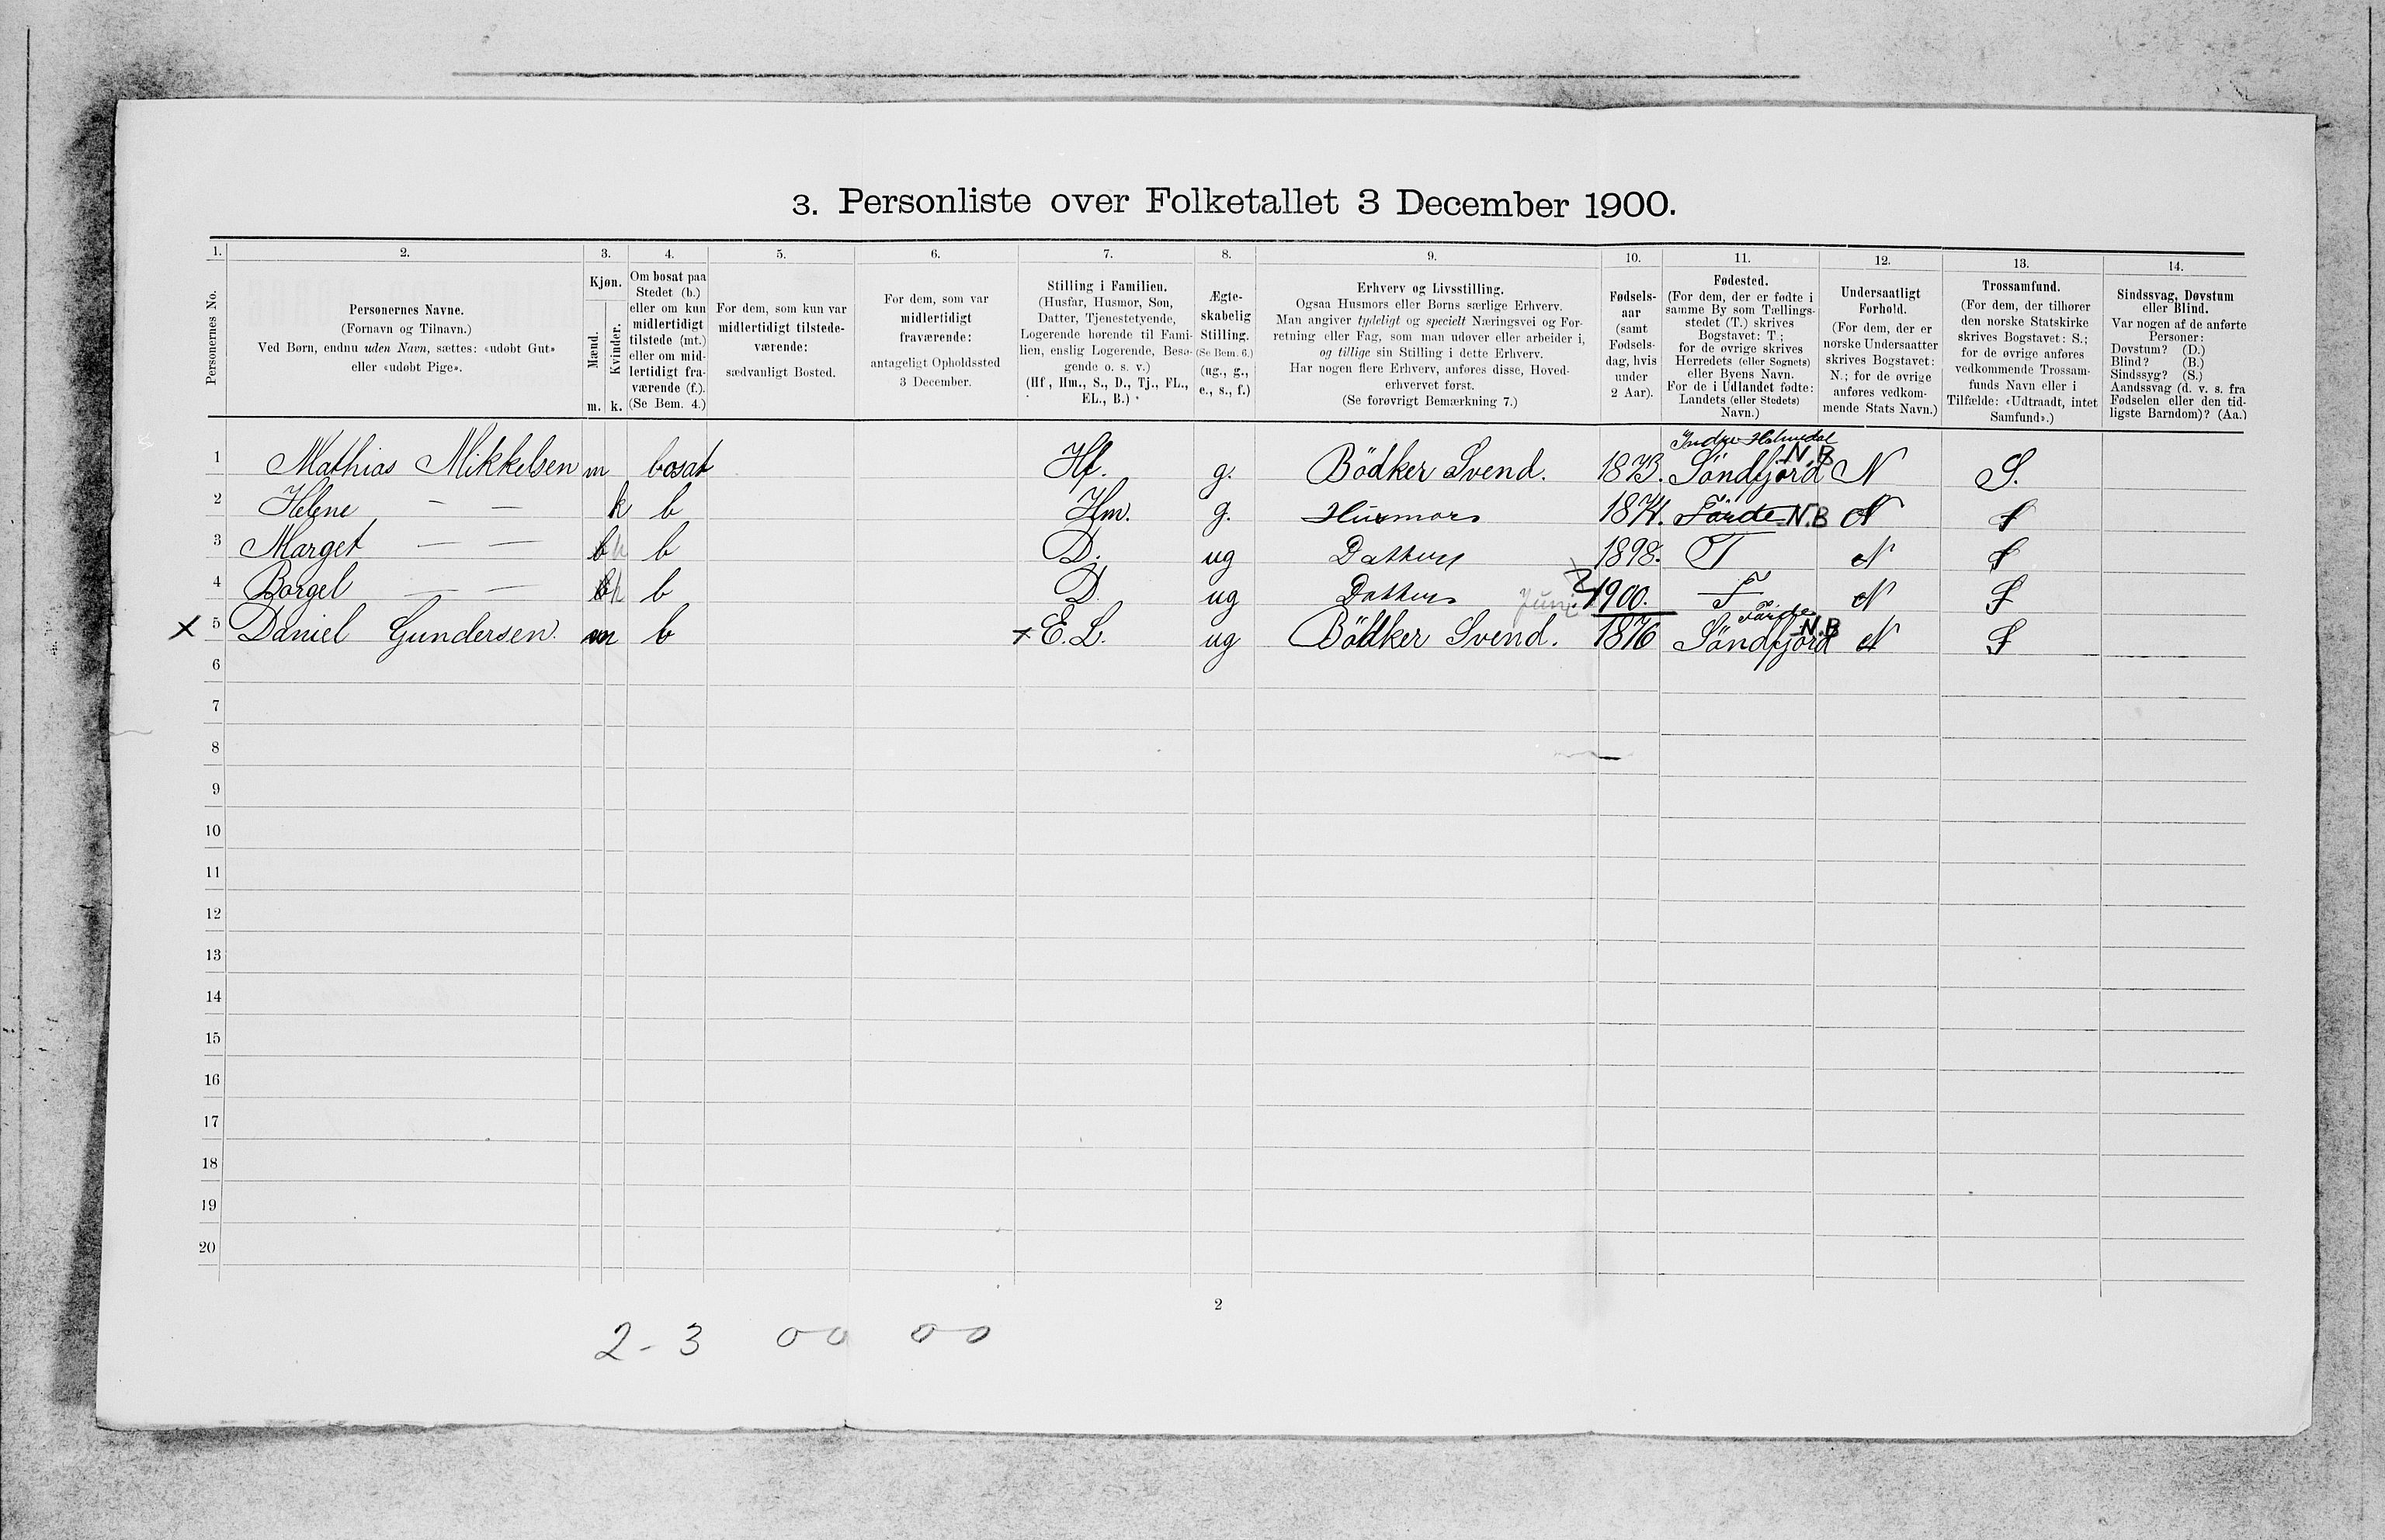 3. Personliste over Folketallet 3 December 1900.
1. 2. 3. 4. 5. 6. 7. 8. 9. 10. 11. 12. 13. 14.
Personernes No.
Personernes Navne.
(Fornavn og Tilnavn.)
Ved Børn, endnu uden Navn, sættes: «udøbt Gut»
eller «udøbt Pige».
Kjøn.
Mænd.
Kvinder.
m. k.
Om bosat paa
Stedet (b.)
eller om kun
midlertidigt
tilstede (mt.)
eller om mid-
lertidigt fra-
værende (f.).
(Se Bem. 4.)
For dem, som kun var
midlertidigt tilstede-
værende:
sædvanligt Bosted.
For dem, som var
midlertidigt
fraværende:
antageligt Opholdssted
3 December.
Stilling i Familien.
(Husfar, Husmor, Søn,
Datter, Tjenestetyende,
Logerende hørende til Fami-
lien, enslig Logerende, Besø-
gende o. s. v.)
(Hf., Hm., S., D., Tj., FL.,
EL., B.)
Ægte-
skabelig
Stilling.
(Se Bem. 6.)
(ug., g.,
e., s., f.)
Erhverv og Livsstilling.
Ogsaa Husmors eller Børns særlige Erhverv.
Man angiver tydeligt og specielt Næringsvei og For-
retning eller Fag, som man udøver eller arbeider i,
og tillige sin Stilling i dette Erhverv.
Har nogen flere Erhverv, anføres disse, Hoved-
erhvervet først.
(Se forøvrigt Bemærkning 7.)
Fødsels-
aar
(samt
Fødsels-
dag, hvis
under
2 Aar).
Fødested.
(For dem, der er fødte i
samme By som Tællings-
stedet (T.) skrives
Bogstavet: T.;
for de øvrige skrives
Herredets (eller Sognets)
eller Byens Navn.
For de i Udlandet fødte:
Landets (eller Stedets)
Navn.)
Undersaatligt
Forhold.
(For dem, der er
norske Undersaatter
skrives Bogstavet:
N.; for de øvrige
anføres vedkom-
mende Stats Navn.)
Trossamfund.
(For dem, der tilhører
den norske Statskirke
skrives Bogstavet: S.;
for de øvrige anføres
vedkommende Trossam-
funds Navn eller i
Tilfælde: «Udtraadt, intet
Samfund».)
Sindssvag, Døvstum
eller Blind.
Var nogen af de anførte
Personer:
Døvstum? (D.)
Blind? (B.)
Sindssyg? (S.)
Aandssvag (d. v. s. fra
Fødselen eller den tid-
ligste Barndom)? (Aa.)
Indre Holmedal
1 Mathias Mikkelsen m bosat Hf. g. Bödker Svend. 1873. Söndfjord N.B N S.
2 Helene — — k b Hm. g. Husmor 1874. Förde N.B N S
3 Marget — — k b D. ug Datter 1898. T N S
4 Borgel — — k b D. ug Datter Juni 1900. T N S
Förde
X 5 Daniel Gundersen. m b x E. L. ug Bödker Svend. 1876 Söndfjord N.B N S
6
7
8
9
10
11
12
13
14
15
16
17
18
19
20
2
2 - 3 00 00